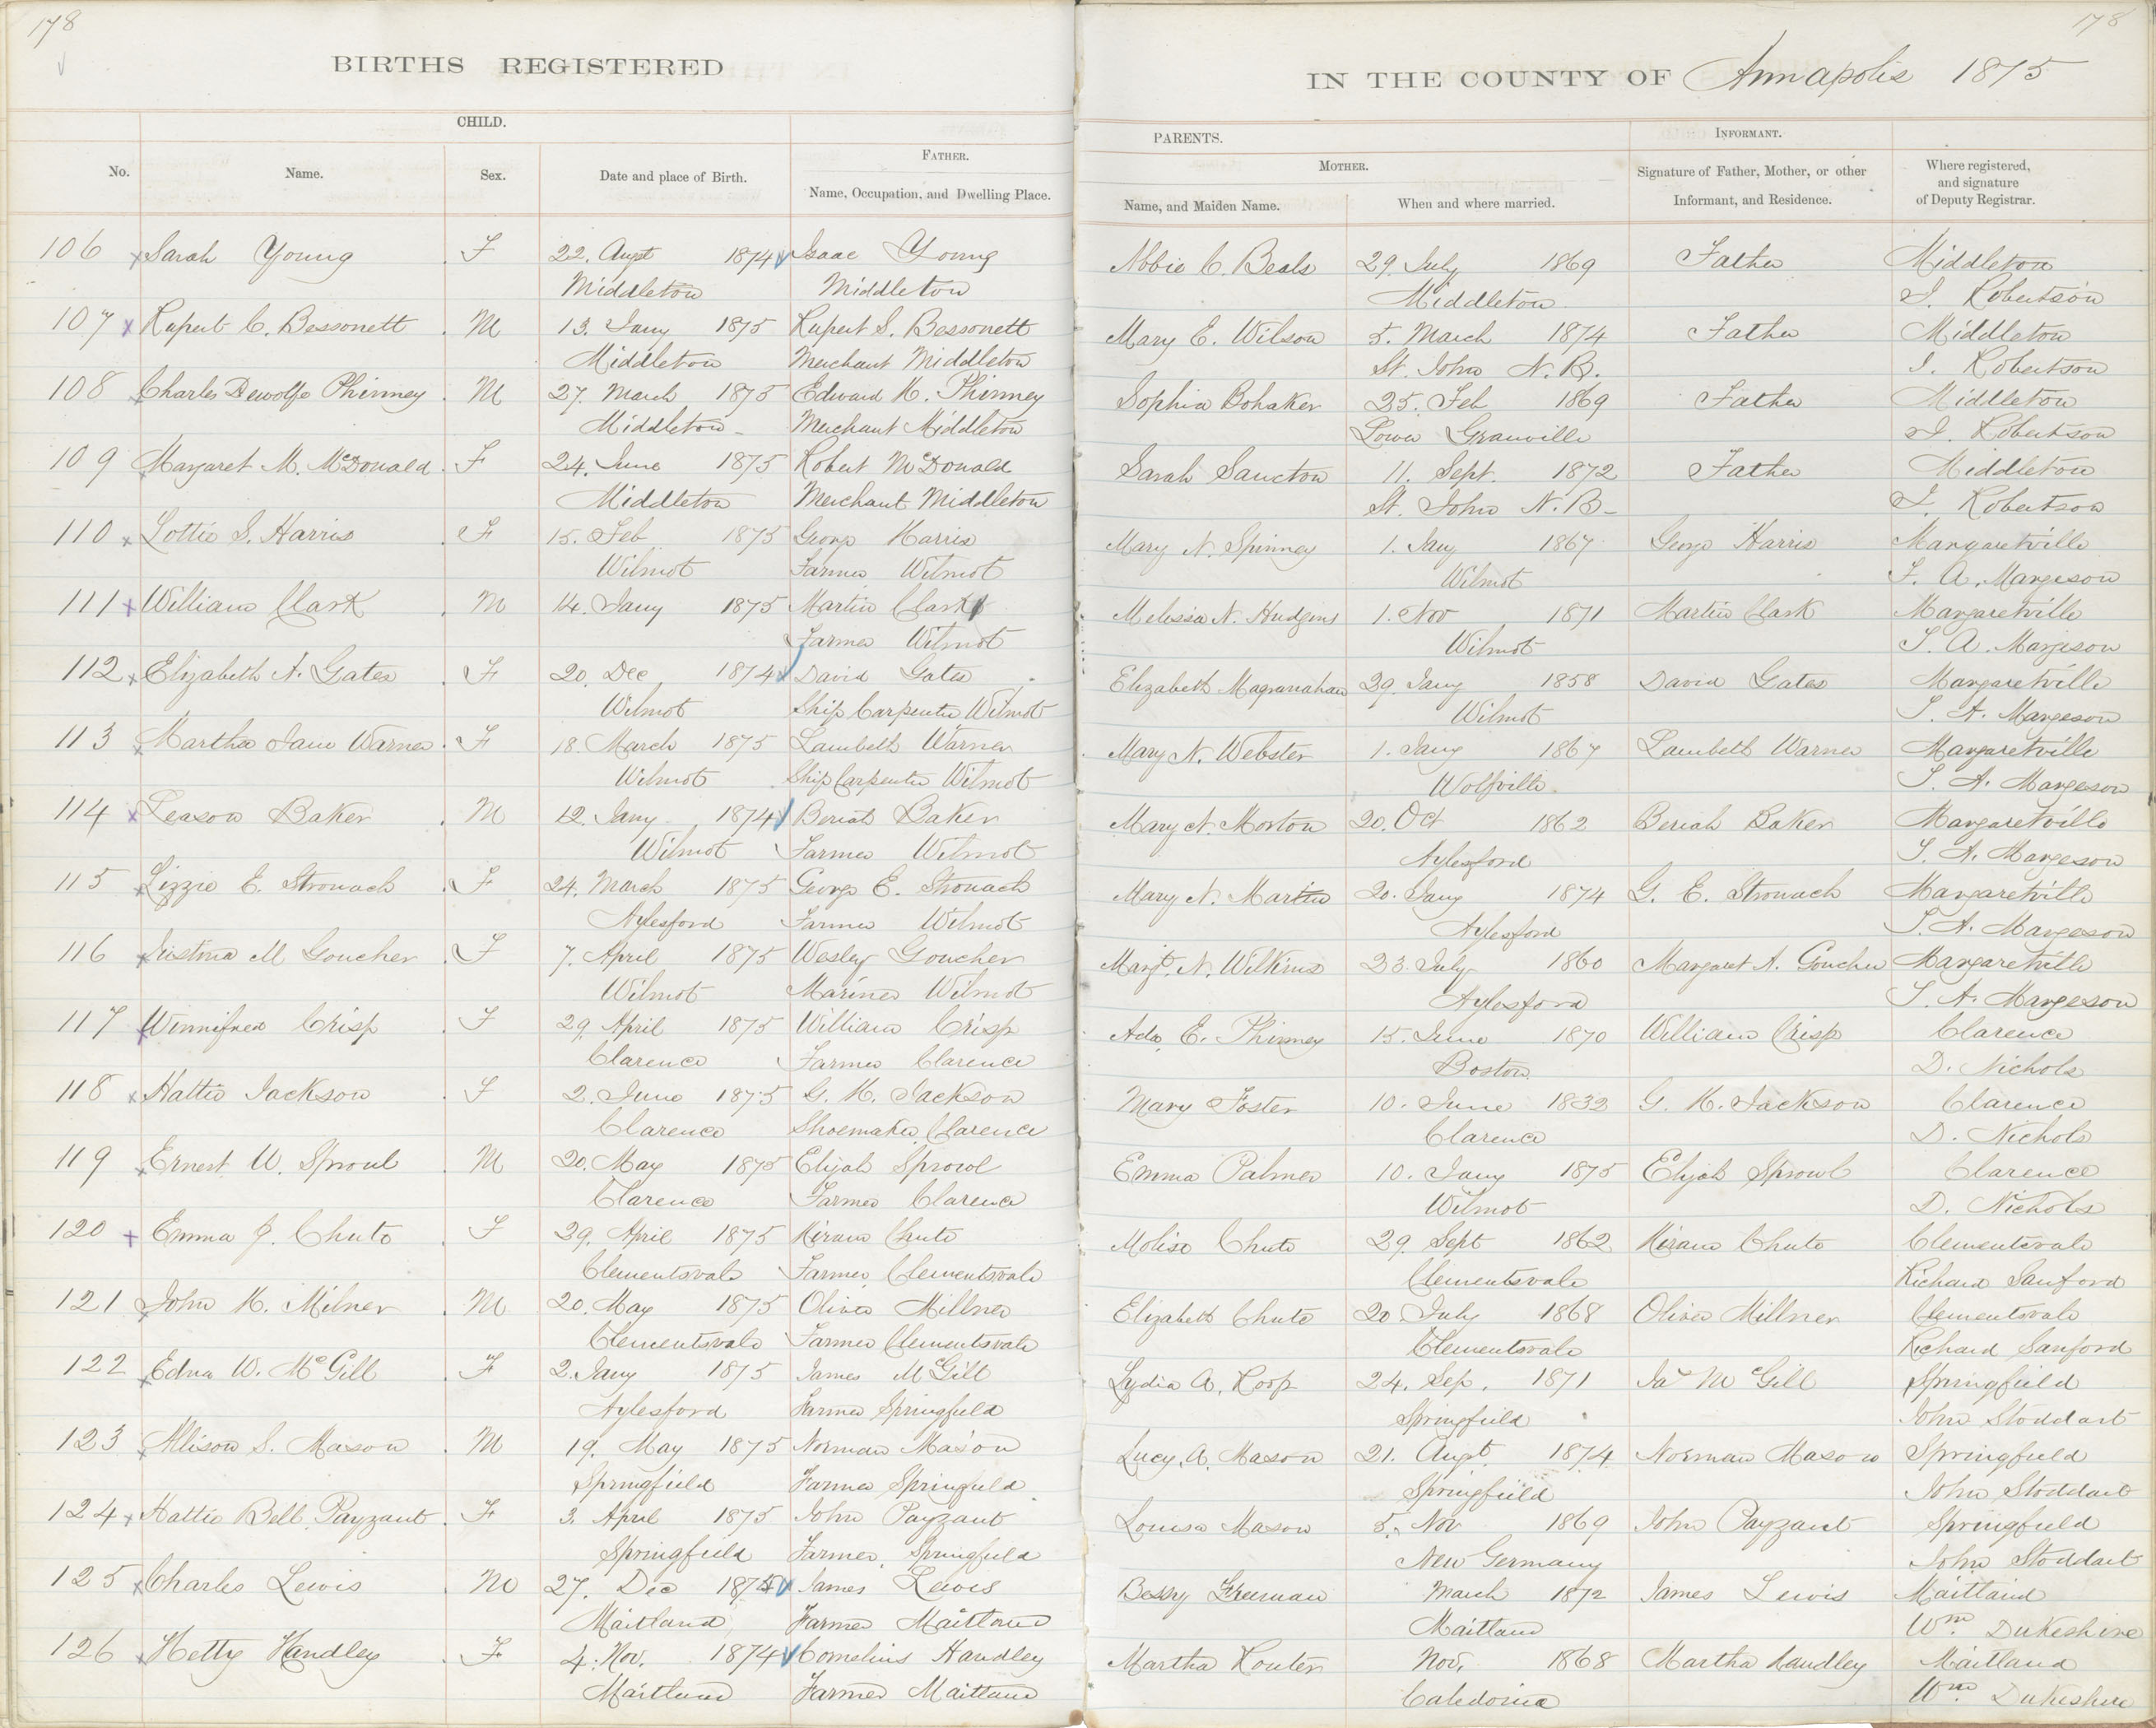 178
178
BIRTHS REGISTERED
IN THE COUNTY OF Annapolis 1875
CHILD.
PARENTS.
INFORMANT.
No.
Name.
Sex.
Date and place of Birth.
FATHER.
Name, Occupation, and Dwelling Place.
MOTHER.
Name, and Maiden Name.
When and where married.
Signature of Father, Mother, or other
Informant, and Residence.
Where registered,
and signature
of Deputy Registrar.
106 Sarah Young F 22. Augt 1874 Isaac Young Abbie C. Beals 29. July 1869 Father Middleton
Middleton Middleton Middleton I. Robertson
107 Rupert C. Bessonett M 13. Jany 1875 Rupert S. Bessonett Mary E. Wilson 5. March 1874 Father Middleton
Middleton Merchant Middleton St. John N.B. I. Robertson
108 Charles Dewolfe Phinney M 27. March 1875 Edward H. Phinney Sophia Bohaker 25. Feb 1869 Father Middleton
Middleton Merchant Middleton Lower Granville I. Robertson
109 Margaret M. McDonald F 24. June 1875 Robert McDonald Sarah Sancton 11. Sept. 1872 Father Middleton
Middleton Merchant Middleton St. John N.B. I. Robertson
110 Lottie S. Harris F 15. Feb 1875 George Harris Mary N. Spinney 1. Jany 1867 George Harris Margaretville
Wilmot Farmer Wilmot Wilmot A. Margeson
111 William Clark M 14. Jany 1875 Martin Clark Melissa N. Hudgins 1. Nov 1871 Martin Clark Margaretville
Farmer Wilmot Wilmot A. Margeson
112 Elizabeth A. Gates F 20. Dec 1874 David Gates Elizabeth Magranahan 29. Jany 1858 David Gates Margaretville
Wilmot Ship Carpenter Wilmot Wilmot A. Margeson
113 Martha Jane Warner F 18. March 1875 Lambeth Warner Mary N. Webster 1. Jany 1867 Lambeth Warner Margaretville
Wilmot Ship Carpenter Wilmot Wolfville A. Margeson
114 Leason Baker M 12. Jany 1874 Beriah Baker Mary A. Morton 20. Oct 1862 Beriah Baker Margaretville
Wilmot Farmer Wilmot Aylesford A. Margeson
115 Lizzie E. Stronach F 24. March 1875 George E. Stronach Mary N. Martin 20. Jany 1874 G. E. Stronach Margaretville
Aylesford Farmer Wilmot Aylesford A. Margeson
116 Justina M Goucher F 7. April 1875 Wesley Goucher Margt. N. Wilkins 23. July 1860 Margaret A. Goucher Margaretville
Wilmot Mariner Wilmot Aylesford A. Margeson
117 Winnifred Crisp F 29. April 1875 William Crisp Ada E. Phinney 15. June 1870 William Crisp Clarence
Clarence Farmer Clarence Boston D. Nichols
118 Hattie Jackson F 2. June 1875 G. H. Jackson Mary Foster 10. June G. H. Jackson Clarence
Clarence Shoemaker Clarence Clarence D. Nichols
119 Ernest W. Sproul M 20. May 1875 Elijah Sprowl Emma Palmer 10. Jany 1875 Elijah Sprowl Clarence
Clarence Farmer Clarence Wilmot D. Nichols
120 Emma J. Chute F 29. April 1875 Hiram Chute Molise Chute 29. Sept 1862 Hiram Chute Clementsvale
Clementsvale Farmer Clementsvale Clementsvale Richard Sanford
121 John H. Milner M 20. May 1875 Oliver Millner Elizabeth Chute 20 July 1868 Oliver Millner Clementsvale
Clementsvale Farmer Clementsvale Clementsvale Richard Sanford
122 Edna W. McGill F 2. Jany 1875 James McGill Lydia A. Roop 24. Sep. 1871 Jas McGill Springfield
Aylesford Farmer Springfield Springfield John Stoddart
123 Allison S. Mason M 19. May 1875 Norman Mason Lucy. A. Mason 21. Augt. 1874 Norman Mason Springfield
Springfield Farmer Springfield Springfield John Stoddart
124 Hattie Bell Payzant F 3. April 1875 John Payzant Louisa Mason 5. Nov 1869 John Payzant Springfield
Springfield Farmer Springfield New Germany John Stoddart
125 Charles Lewis M 27. Dec 1874 James Lewis Bessy Freeman March 1872 James Lewis Maitland
Maitland Farmer Maitland Maitland Wm. Dukeshire
126 Hetty Handley F 4. Nov. 1874 Cornelius Handley Martha Nov. 1868 Martha Handley Maitland
Maitland Farmer Maitland Caledonia Wm. Dukeshire